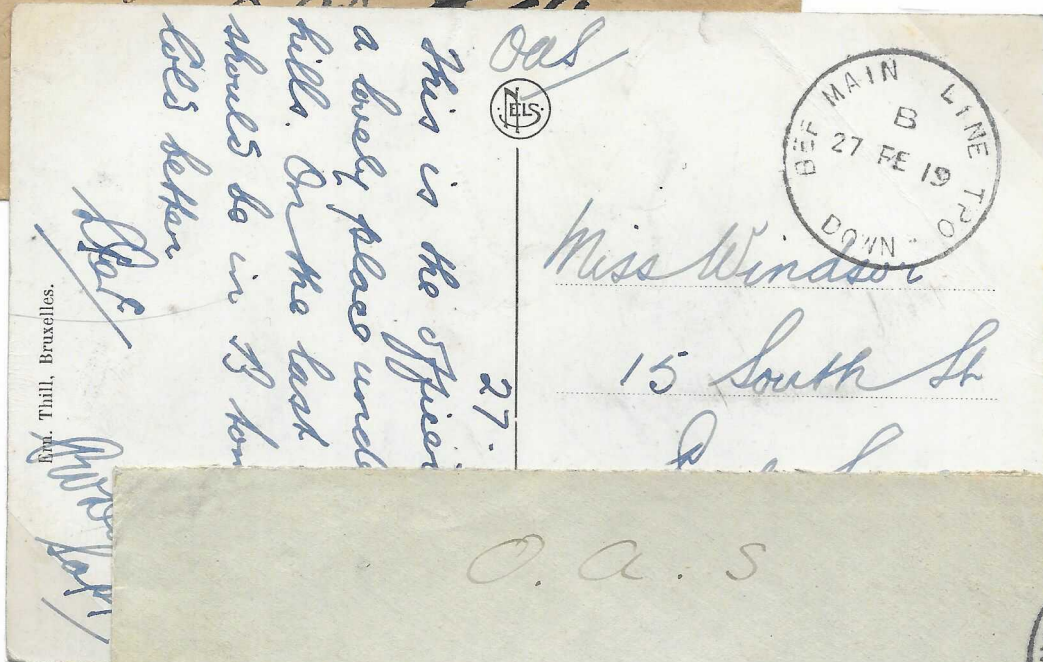 OaS
NELS
BEF MAIN LINE TPO
B
27 FE 19
DOWN
Miss Windsor
15 South St
27.
This is the Officer
a lovely place und
hills. On the last
should be in B ton
cold better
Ern. Thill, Bruxelles.
O. a. s